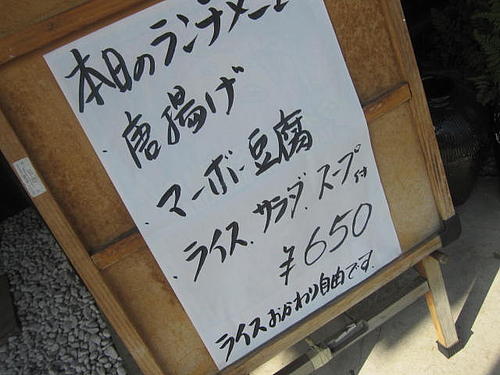 本日のランチメニュー
・唐揚げ
・マーボー豆腐
・ライス、サラダ、スープ付
¥650
ライスおかわり自由です。